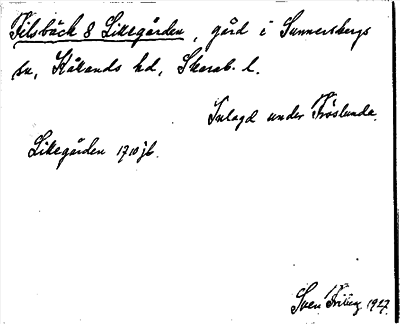 Filsbäck 8 Lillegården, gård i Sunnersbergs
sn, Kållands hd, Skarab. l.
Inlagd under Fröslunda.
Lillegården 1710 jb.
Sven 1927.